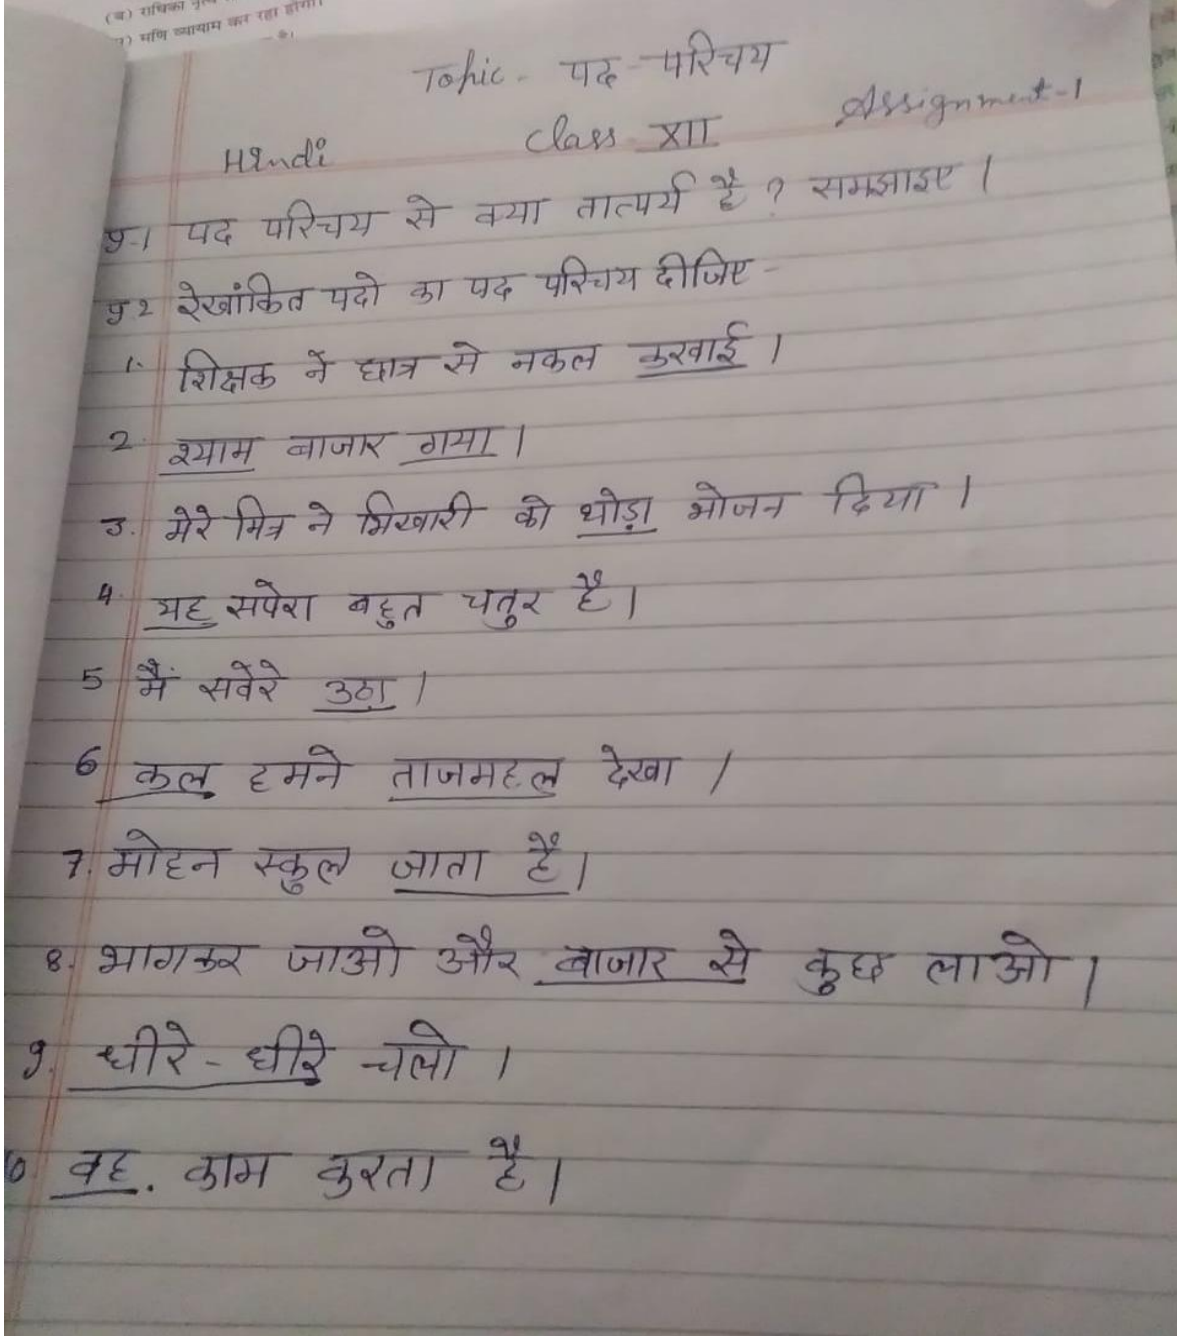 (ब) राधिका नृत्य
मणि व्यायाम कर रहा होगा।
Topic - पद - परिचय
Hindi Class XII Assignment-1
प्र.1 पद परिचय से क्या तात्पर्य है ? समझाइए ।
प्र.2 रेखांकित पदो का पद परिचय दीजिए -
1. शिक्षक ने छात्र से नकल करवाई ।
2. श्याम बाजार गया ।
3. मेरे मित्र ने भिखारी को थोड़ा भोजन दिया ।
4. यह सपेरा बहुत चतुर है ।
5 मैं सवेरे उठा ।
6 कल हमने ताजमहल देखा ।
7. मोहन स्कुल जाता है ।
8. भागकर जाओ और बाजार से कुछ लाओ ।
9. धीरे - धीरे चलो ।
10 वह . काम करता है ।